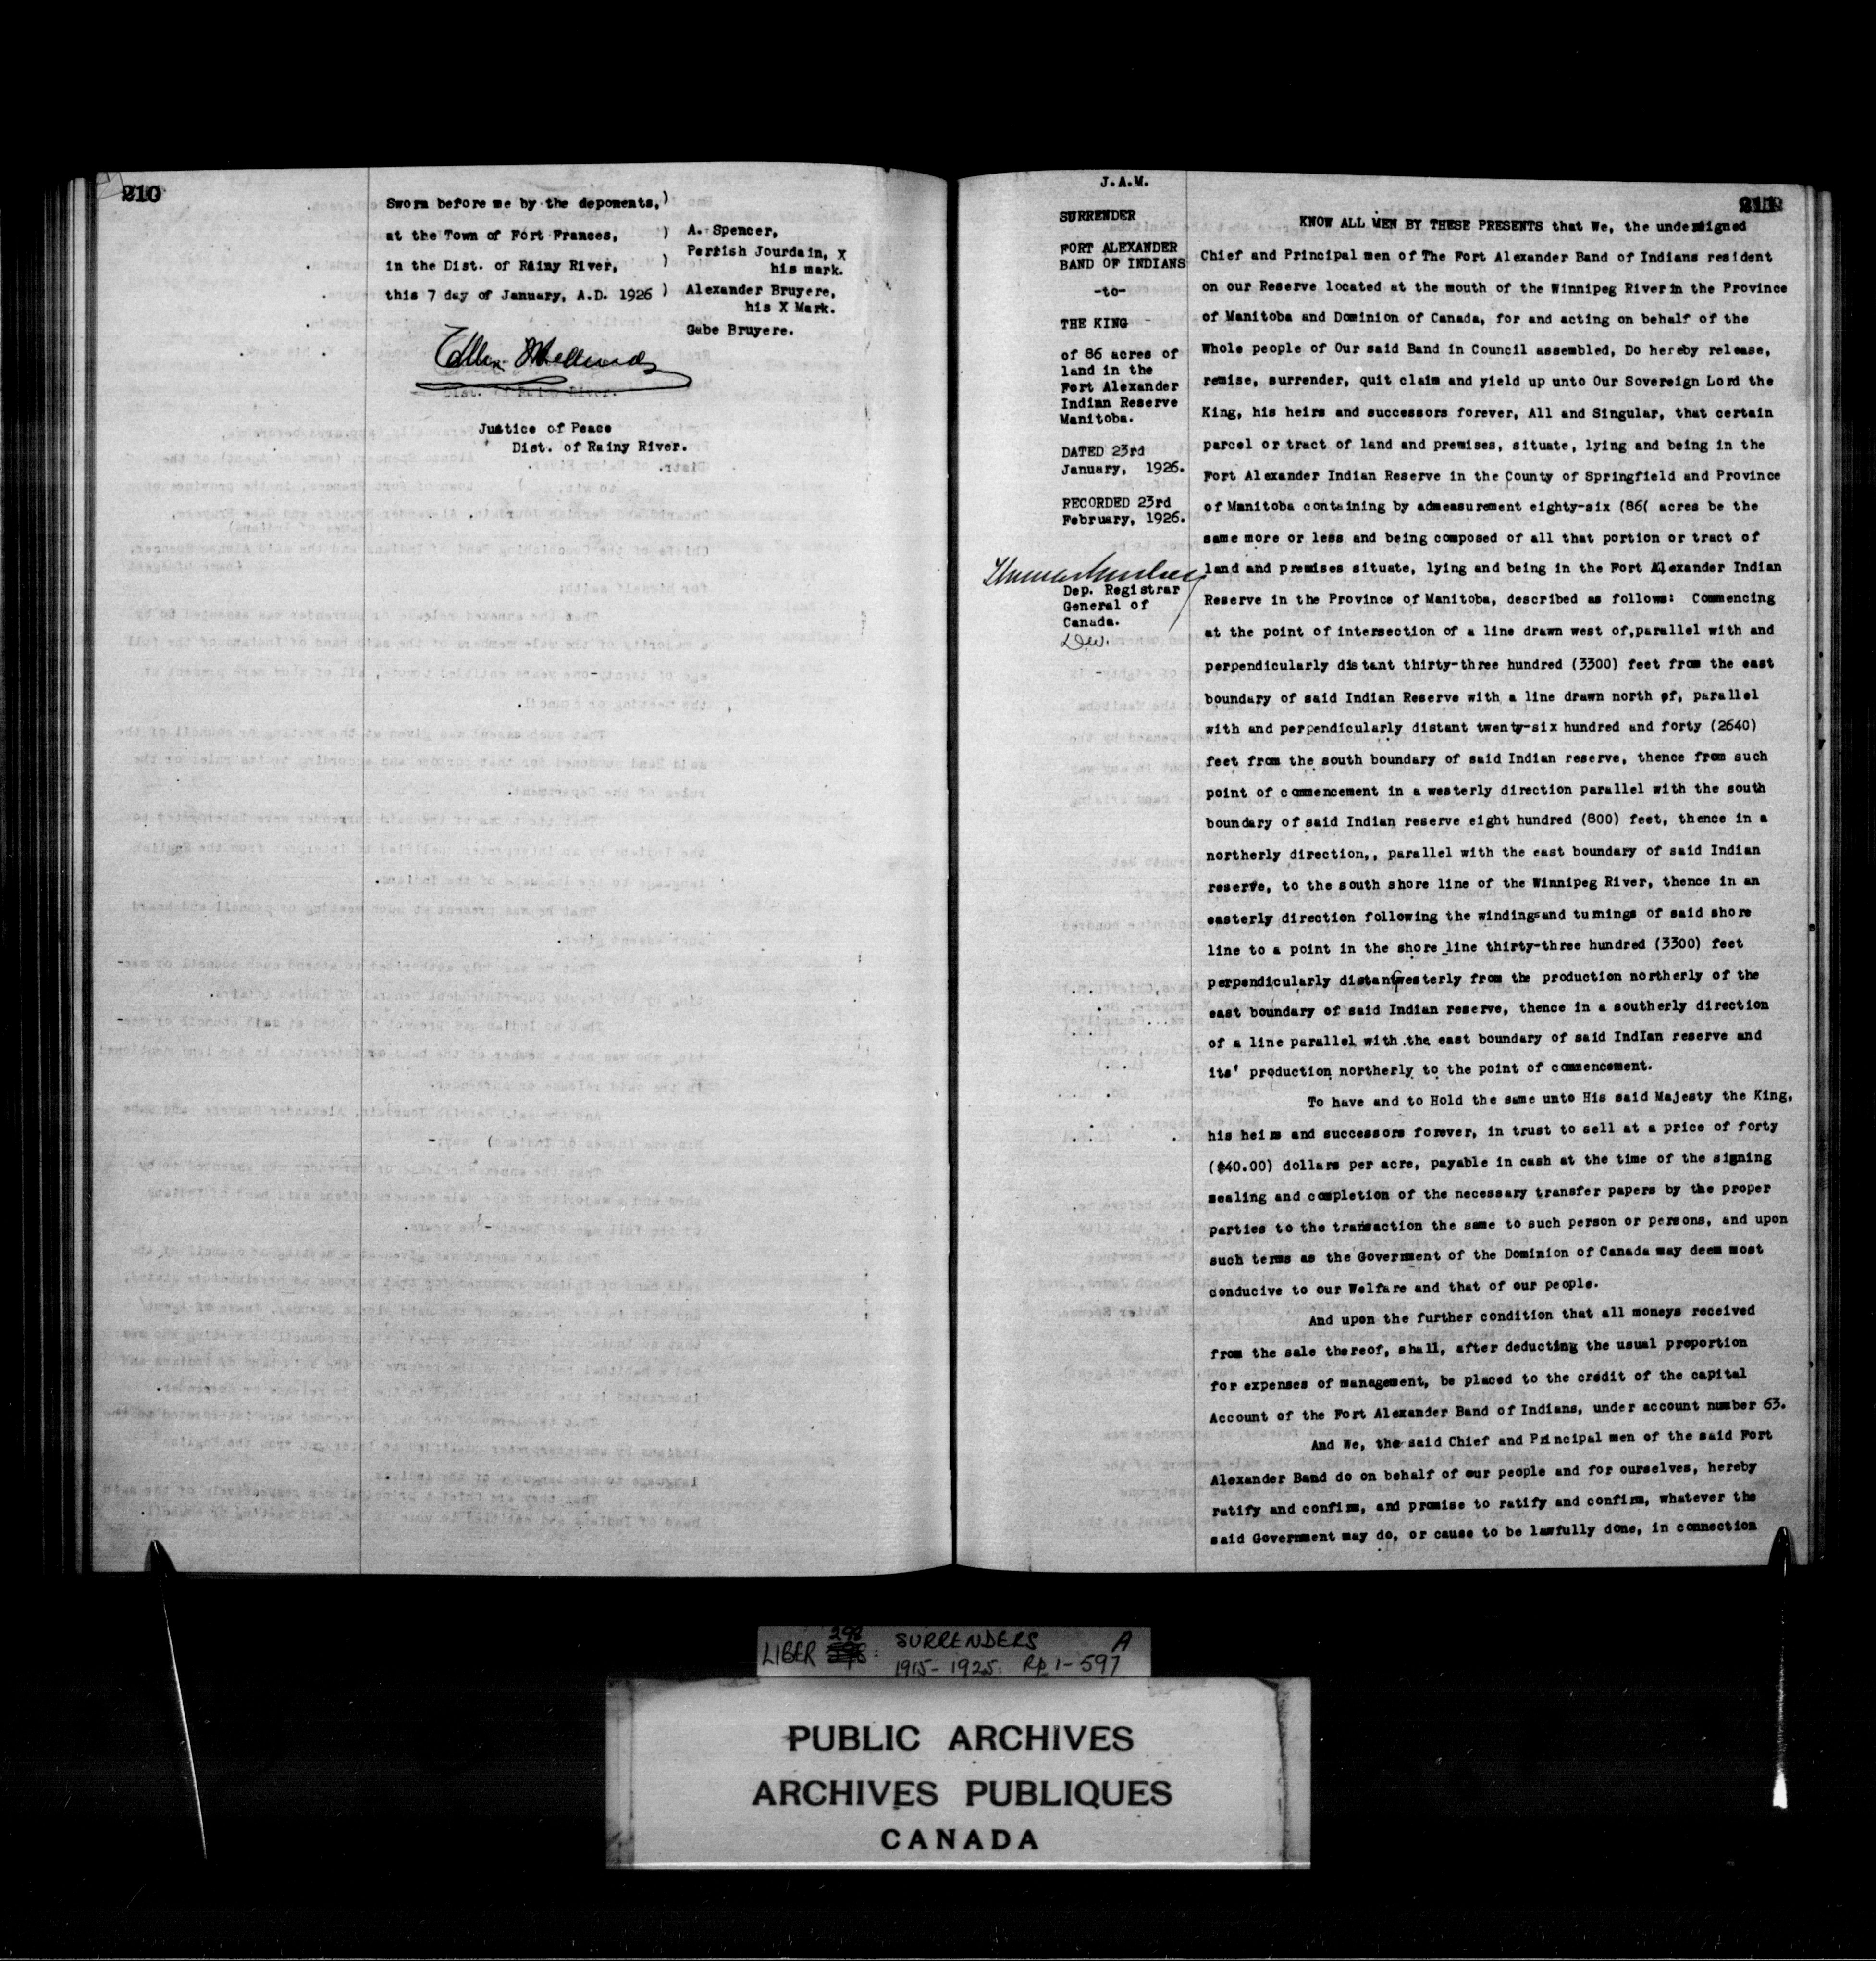 210
Sworn before me by the deponents,)
at the Town of Fort Frances, )
in the Dist. of Rainy River, )
this 7 day of January, A.D. 1926 )
A. Spencer,
Perrish Jourdain, X
his mark.
Alexander Bruyere,
his X Mark.
Gabe Bruyere.
Justice of Peace
Dist. of Rainy River.
J.A.M.
SURRENDER
FORT ALEXANDER
BAND OF INDIANS
-to-
THE KING
of 86 acres of
land in the
Fort Alexander
Indian Reserve
Manitoba.
DATED 23rd
January, 1926.
RECORDED 23rd
February, 1926.
Dep. Registrar
General of
Canada.
211
KNOW ALL MEN BY THESE PRESENTS that We, the undersigned
Chief and Principal men of The Fort Alexander Band of Indians resident
on our Reserve located at the mouth of the Winnipeg River in the Province
of Manitoba and Dominion of Canada, for and acting on behalf of the
Whole people of Our said Band in Council assembled, Do hereby release,
remise, surrender, quit claim and yield up unto Our Sovereign Lord the
King, his heirs and successors forever, All and Singular, that certain
parcel or tract of land and premises, situate, lying and being in the
Fort Alexander Indian Reserve in the County of Springfield and Province
of Manitoba containing by admeasurement eighty-six (86( acres be the
same more or less and being composed of all that portion or tract of
land and premises situate, lying and being in the Fort Alexander Indian
Reserve in the Province of Manitoba, described as follows: Commencing
at the point of intersection of a line drawn west of,parallel with and
perpendicularly distant thirty-three hundred (3300) feet from the east
boundary of said Indian Reserve with a line drawn north of, parallel
with and perpendicularly distant twenty-six hundred and forty (2640)
feet from the south boundary of said Indian reserve, thence from such
point of commencement in a westerly direction parallel with the south
boundary of said Indian reserve eight hundred (800) feet, thence in a
northerly direction,, parallel with the east boundary of said Indian
reserve, to the south shore line of the Winnipeg River, thence in an
easterly direction following the windings and turnings of said shore
line to a point in the shore line thirty-three hundred (3300) feet
perpendicularly distant westerly from the production northerly of the
east boundary of said Indian reserve, thence in a southerly direction
of a line parallel with the east boundary of said IndIan reserve and
its' production northerly to the point of commencement.
To have and to Hold the same unto His said Majesty the King,
his heirs and successors forever, in trust to sell at a price of forty
($40.00) dollars per acre, payable in cash at the time of the signing
sealing and completion of the necessary transfer papers by the proper
parties to the transaction the same to such person or persons, and upon
such terms as the Government of the Dominion of Canada may deem most
conducive to our Welfare and that of our people.
And upon the further condition that all moneys received
from the sale thereof, shall, after deducting the usual proportion
for expenses of management, be placed to the credit of the capital
Account of the Fort Alexander Band of Indians, under account number 63.
And We, the said Chief and Principal men of the said Fort
Alexander Band do on behalf of our people and for ourselves, hereby
ratify and confirm, and promise to ratify and confirm, whatever the
said Government may do, or cause to be lawfully done, in connection
LIBER 298: SURRENDERS A
1915-1925: Pp 1-597
PUBLIC ARCHIVES
ARCHIVES PUBLIQUES
CANADA